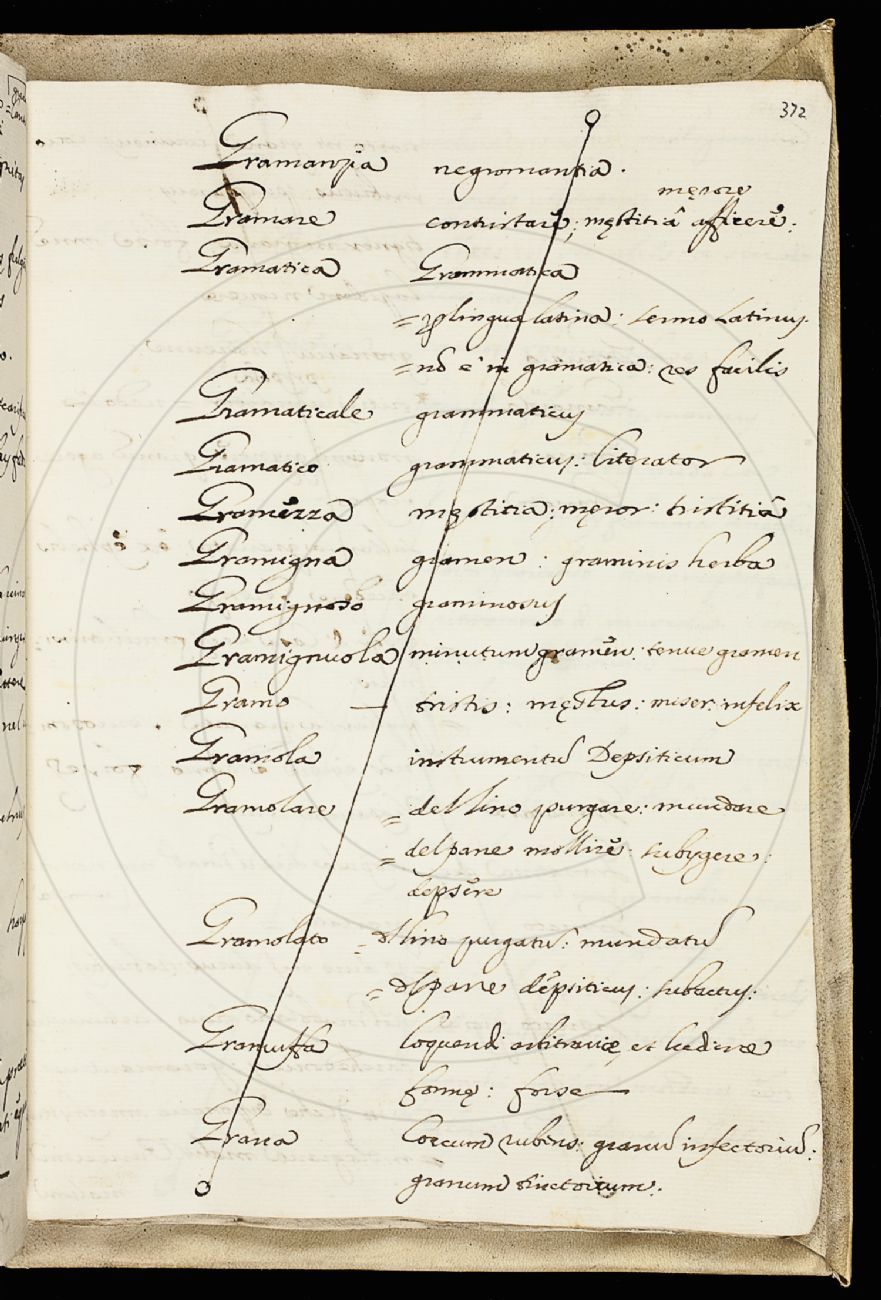 372
Gramanzia negromantia.
męrore
Gramare contristare; męstitiã afficere:
Gramatica Grammatica
= p lingua latina: sermo Latinus.
= nõ è in gramatica: res facilis
Gramaticale grammaticus
Gramatico grammaticus: literator
Gramezza męstitia; męror: tristitiã
Gramigna gramen: graminis herba
Gramignoso graminosus
Gramignuola minutum gramen: tenue gramen
Gramo — tristis: męstus: miser: infelix
Gramola instrumentũ Depsiticum
Gramolare = del lino purgare: mundare
= del pane mollire: subygere:
depsere
Gramolato = dl lino purgatũ: mundatũ
= dl pane depsiticus: subactus:
Gramuffa loquendi arbitrarię et
formę: forse
Grana Coccum rubens: granũ infectoriũ:
granum tinctorium.